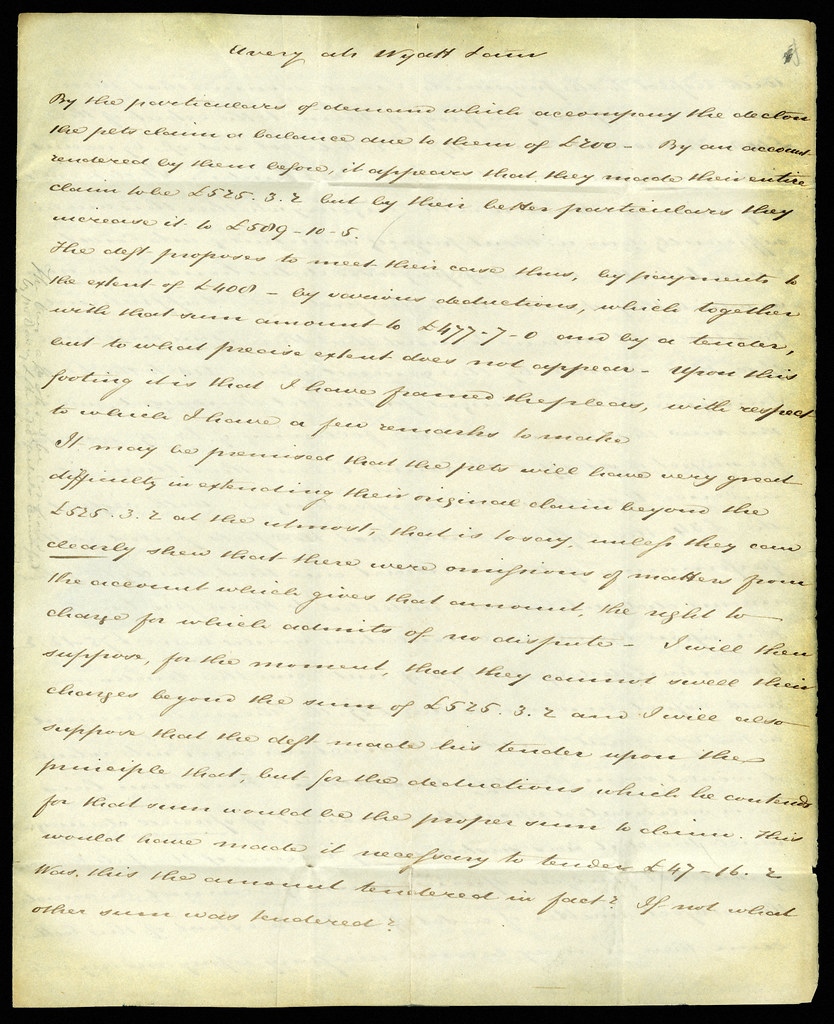 Avery ats Wyatt
By the particulars of demand which accompany the declon
the plfs claim a balance due to them of £200 - By an account
rendered by them before, it appears that they made their entire
claim to be £525. 3. 2 but by their better particulars they
increase it to £589-10-5.
The deft proposes to meet their case thus, by payments to
the extent of £408 - by various deductions, which together
with that sum amount to £477-7-0 and by a tender,
but to what precise extent does not appear - Upon this
footing it is that I have framed the pleas, with respect
to which I have a few remarks to make
It may be premised that the plfs will have very great
difficulty in extending their original claim beyond the
£525. 3. 2 at the utmost, that is to say, unless they can
clearly shew that there were omissions of matters from
the account which gives that amount, the right to
charge for which admits of no dispute - I will then
suppose, for the moment, that they cannot swell their
charges beyond the sum of £525. 3. 2 and I will also
suppose that the deft made his tender upon the
principle that, but for the deductions which he contends
for that sum would be the proper sum to claim. This
would have made it necessary to tender £47-16. 2
Was this the amount tendered in fact? If not what
other sum was tendered?